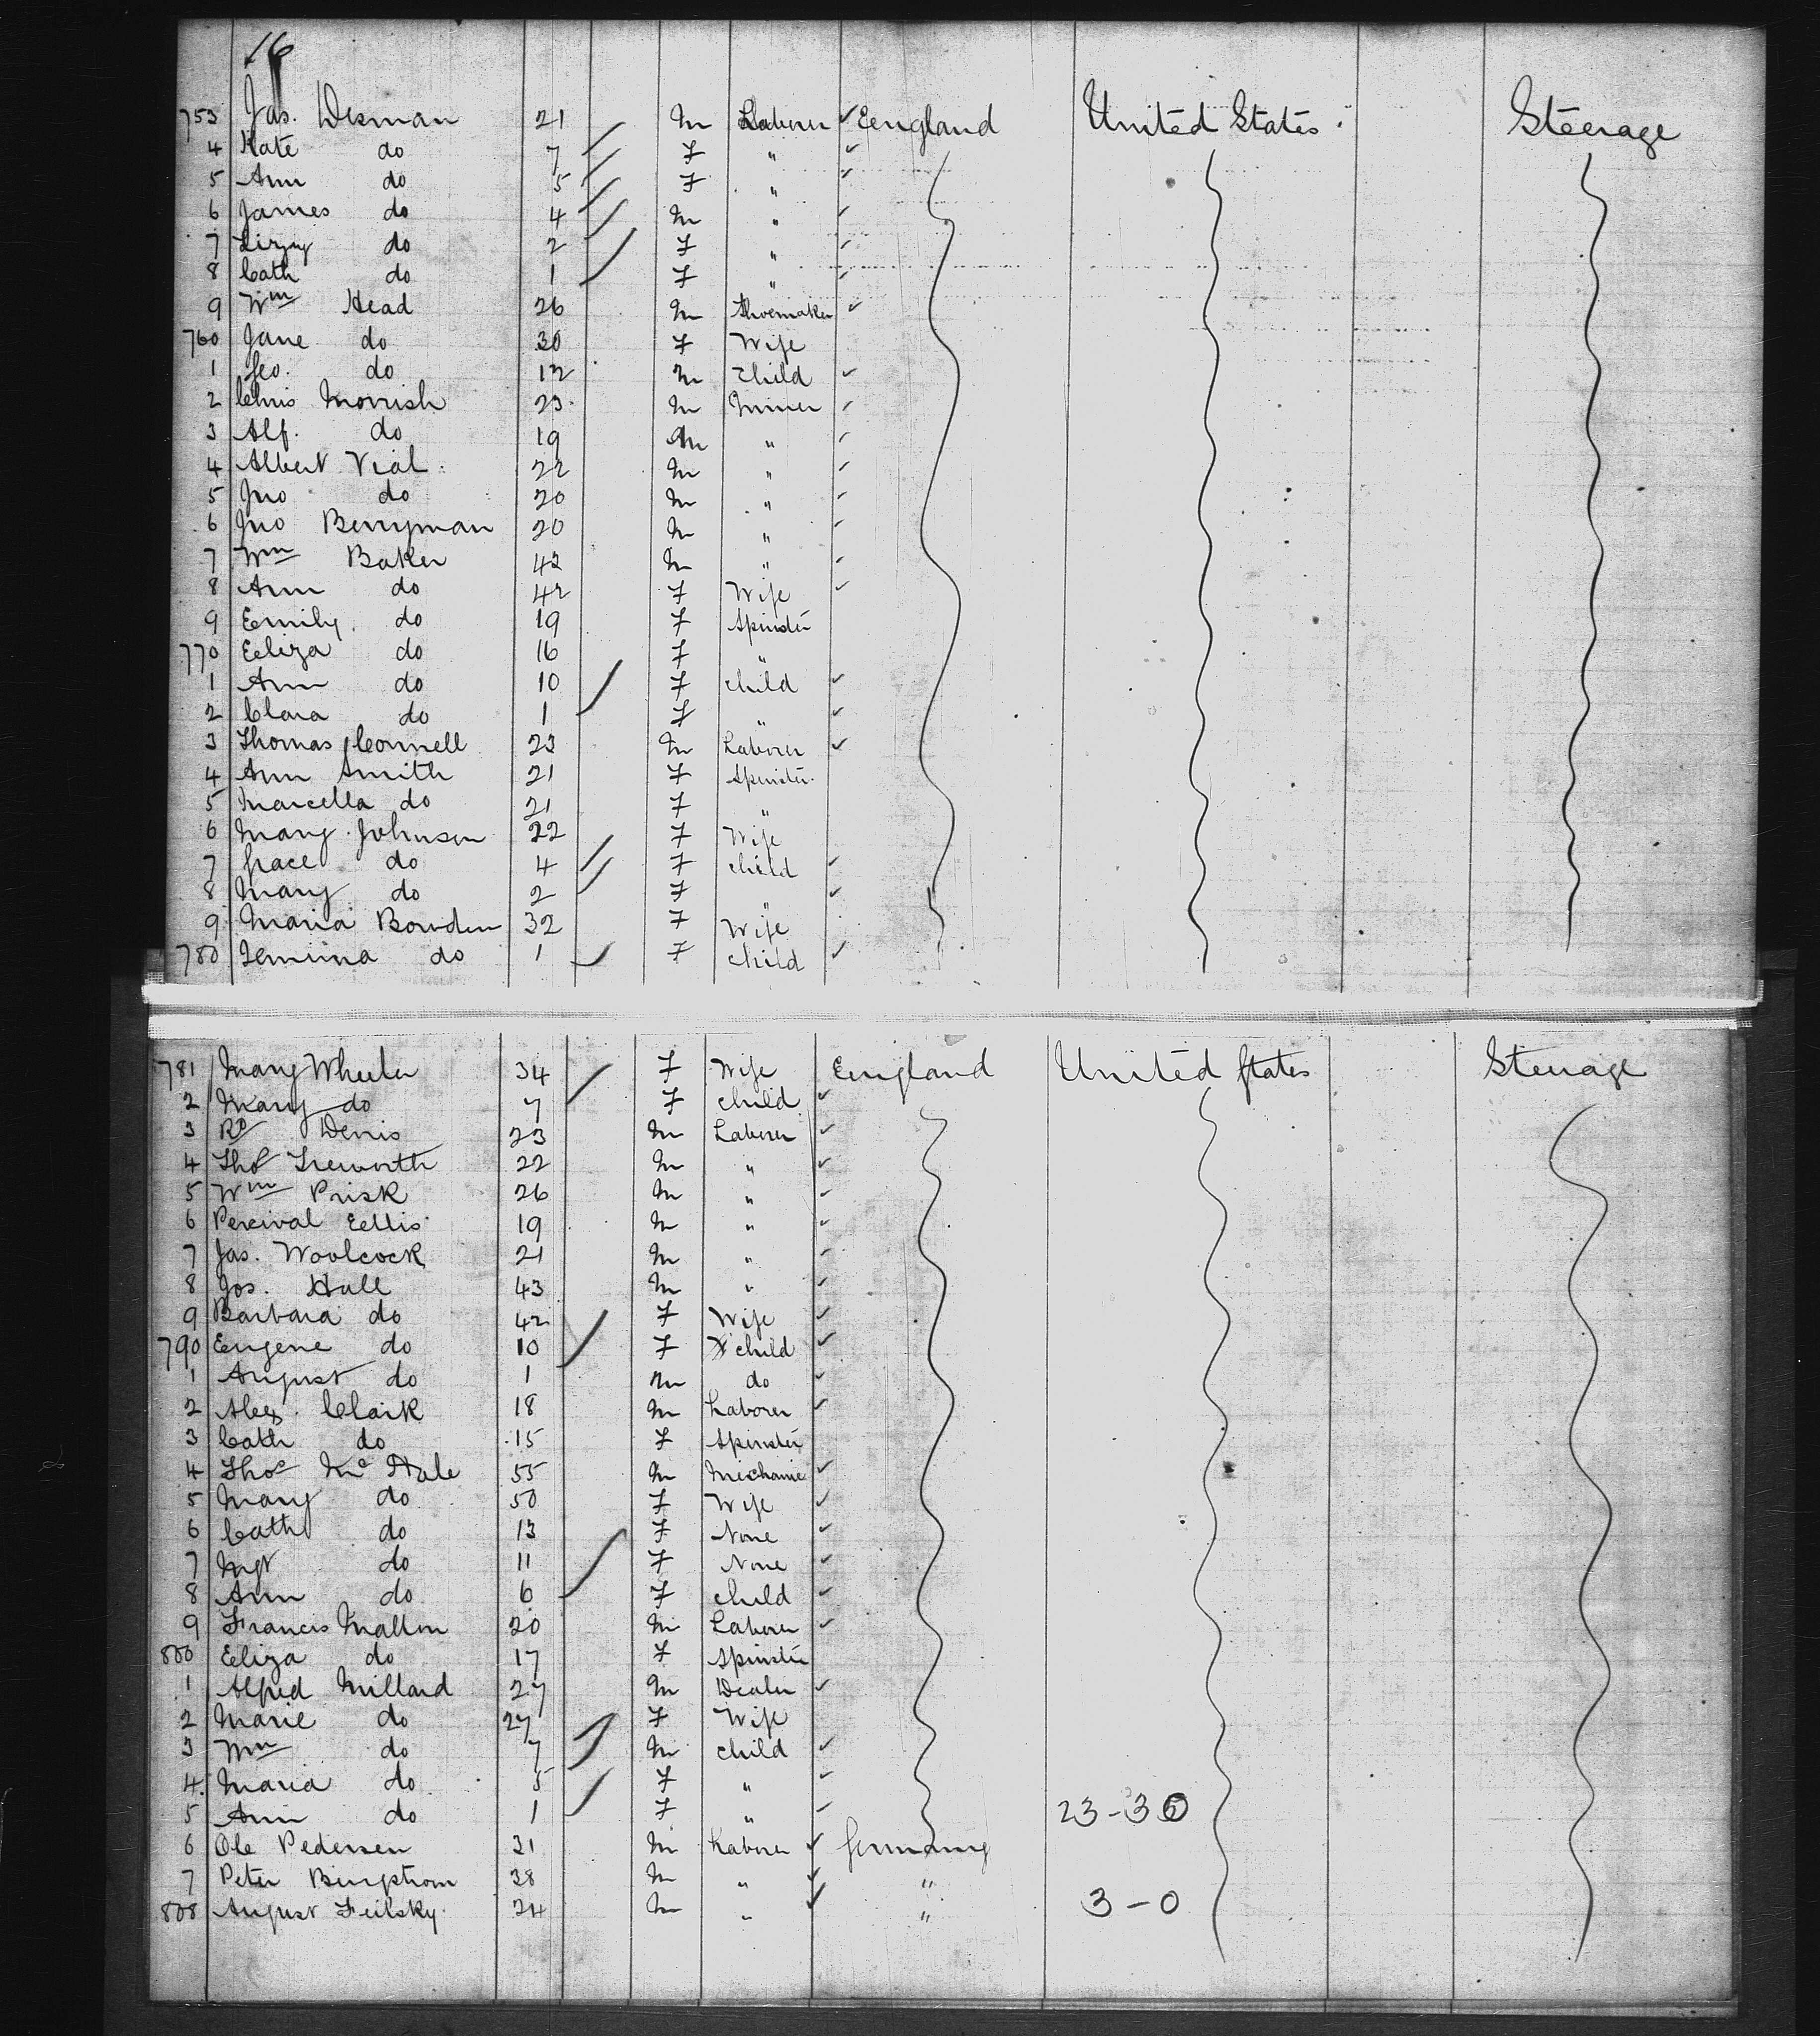 16
753 Jas. Desman 21 M Laborer England United States Steerage
4 Kate do 7 F "
5 Ann do 5 F "
6 James do 4 M "
7 Lizzy do 2 F "
8 Cath do 1 F "
9 Wm Head 26 M Shoemaker
760 Jane do 30 F Wife
1 Geo. do 12 M Child
2 Chris Morrish 23 M Miner
3 Alf. do 19 M "
4 Albert Vial 22 M "
5 Jno do 20 M "
6 Jno Berryman 20 M "
7 Wm Baker 42 M "
8 Ann do 42 F Wife
9 Emily do 19 F Spinster
770 Eliza do 16 F "
1 Ann do 10 F child
2 Clara do 1 F "
3 Thomas Connell 23 M Laborer
4 Ann Smith 21 F Spinster
5 Marcella do 21 F "
6 Mary Johnson 22 F Wife
7 Grace do 4 F child
8 Mary do 2 F "
9 Maria Bowden 32 F Wife
780 Jemima do 1 F child
781 Mary Wheeler 34 F Wife England United States Steerage
2 Mary do 7 F child
3 Rd Denis 23 M Laborer
4 Thos Treworth 22 M "
5 Wm Prisk 26 M "
6 Percival Ellis 19 M "
7 Jas. Woolcock 21 M "
8 Jos. Hall 43 M "
9 Barbara do 42 F Wife
790 Eugene do 10 F child
1 August do 1 M do
2 Alex. Clark 18 M Laborer
3 Cath do 15 F Spinster
4 Thos Mc Hale 55 M Mechanic
5 Mary do 50 F Wife
6 Cath do 13 F None
7 Mgt do 11 F None
8 Ann do 6 F child
9 Francis Mallon 20 M Laborer
800 Eliza do 17 F Spinster
1 Alfred Millard 27 M Dealer
2 Marie do 27 F Wife
3 Wm do 7 M child
4 Maria do 5 F "
5 Ann do 1 F " 23-30
6 Ole Pedersen 31 M Laborer Germany
7 Peter Bergstrom 38 M " "
808 August Feilsky 24 M " " 3-0